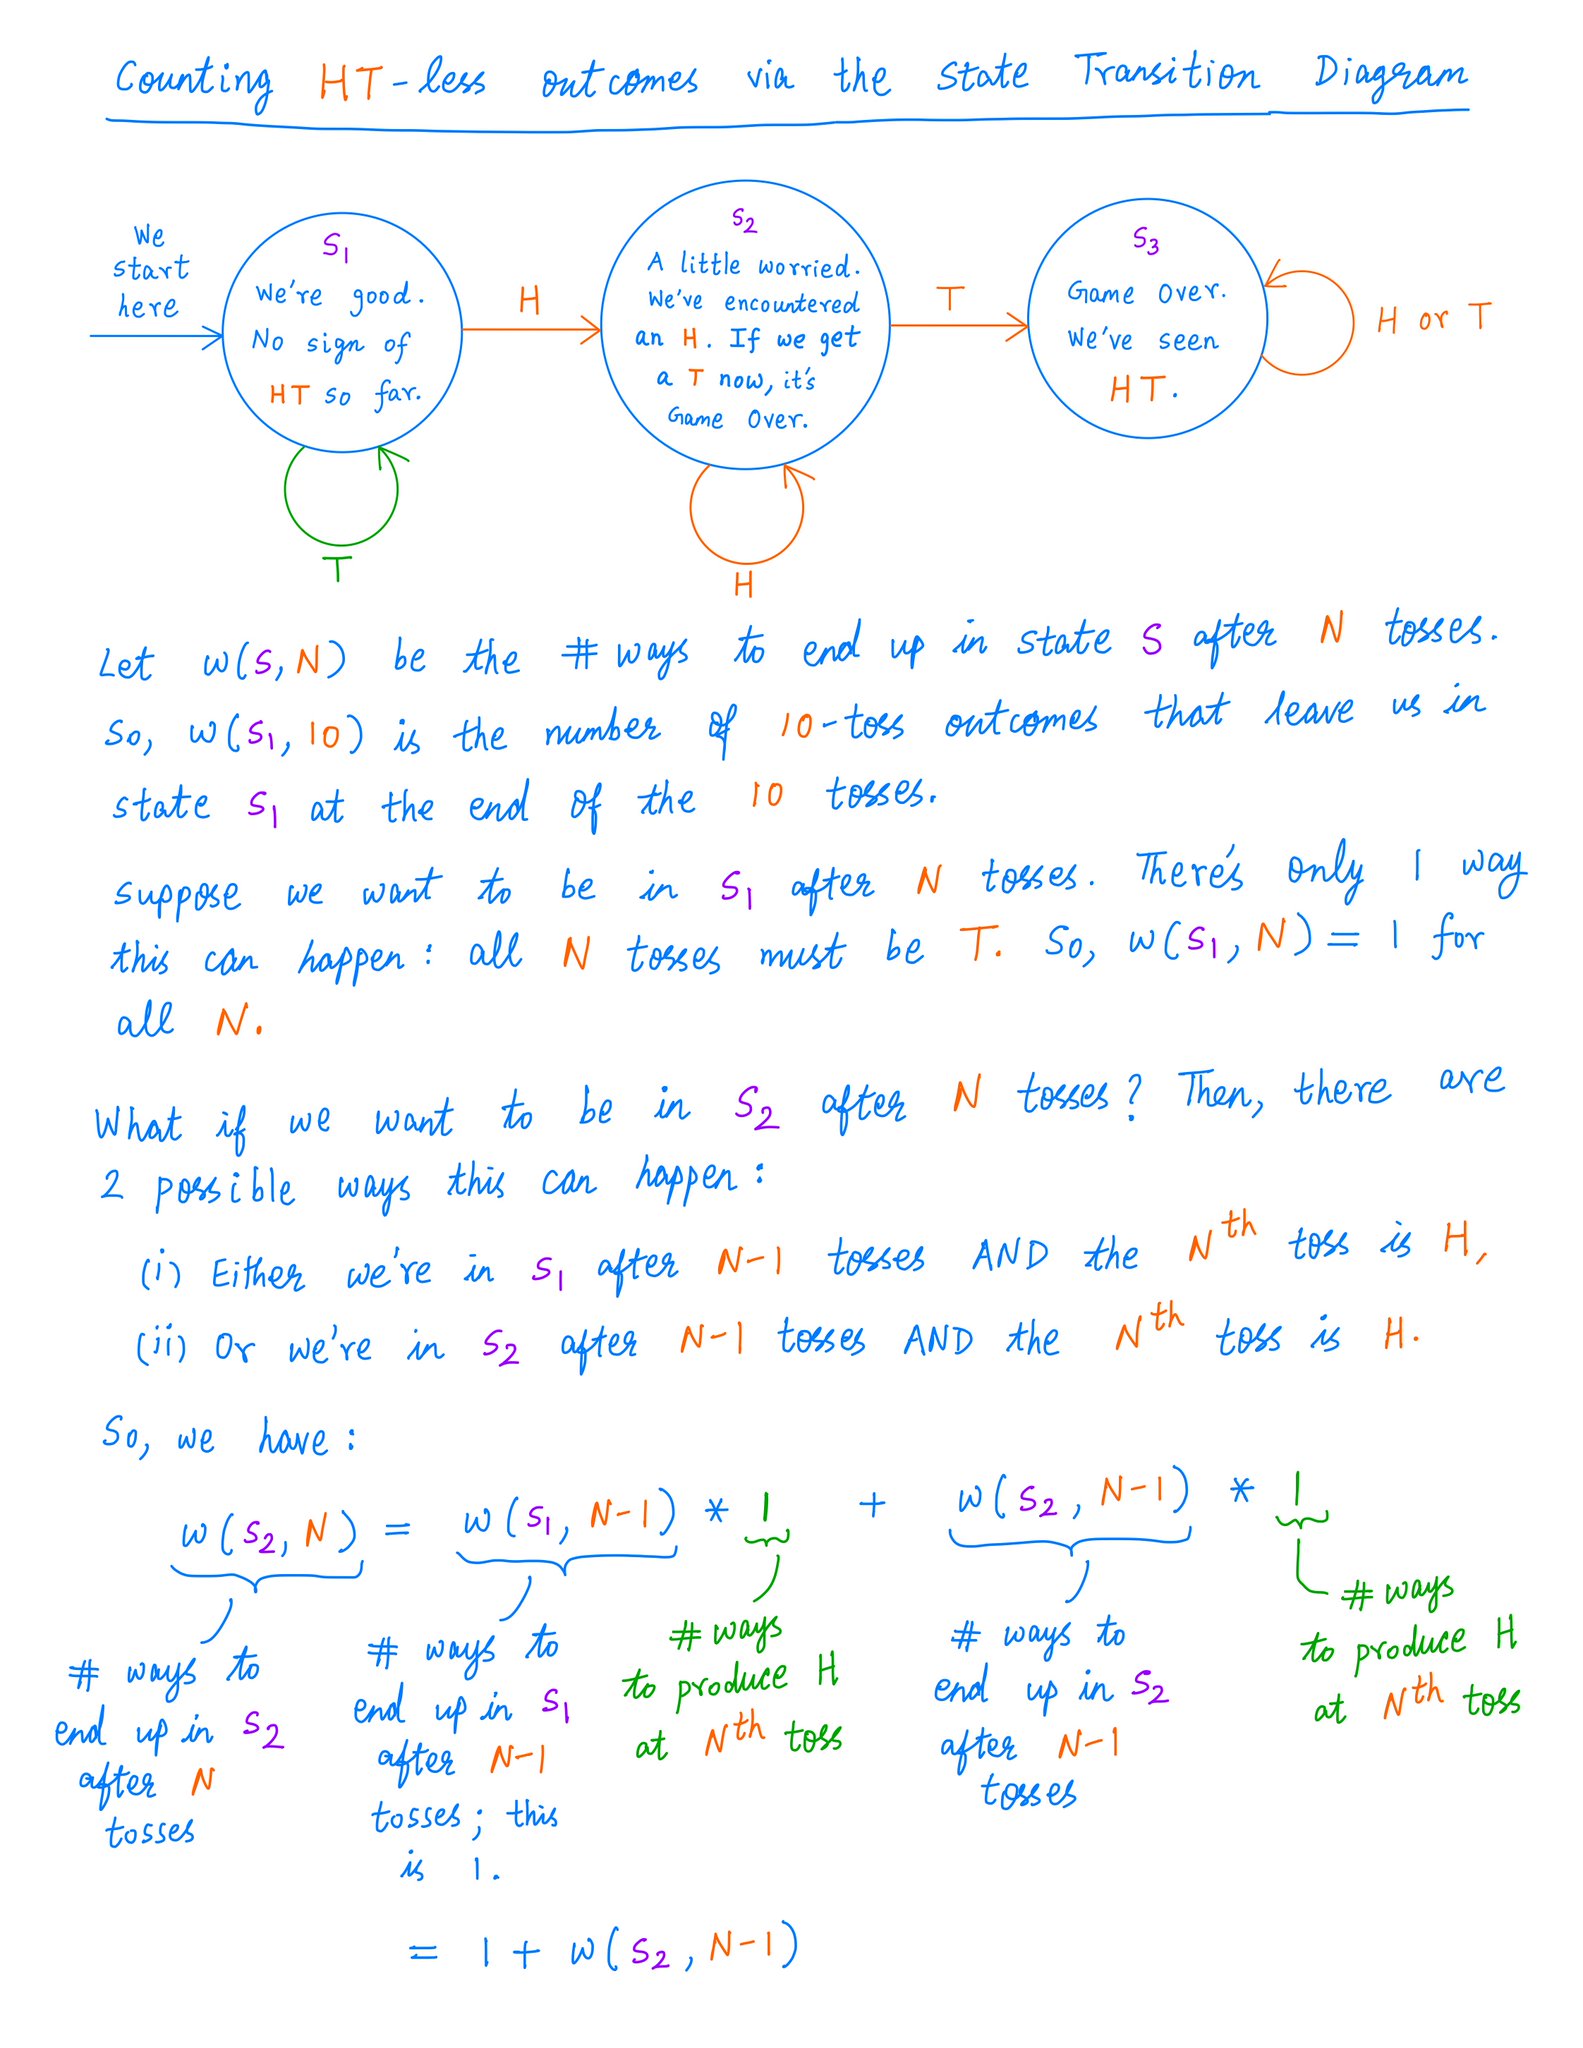 Counting HT-less outcomes via the State Transition Diagram
We
start
here
S1
We're good.
No sign of
HT so far.
T
H
S2
A little worried.
We've encountered
an H. If we get
a T now, it's
Game Over.
H
T
S3
Game Over.
We've seen
HT.
H or T
Let w(S, N) be the # ways to end up in state S after N tosses.
So, w(S1, 10) is the number of 10-toss outcomes that leave us in
state S1 at the end of the 10 tosses.
Suppose we want to be in S1 after N tosses. There's only 1 way
this can happen: all N tosses must be T. So, w(S1, N) = 1 for
all N.
What if we want to be in S2 after N tosses? Then, there are
2 possible ways this can happen:
(i) Either we're in S1 after N-1 tosses AND the Nth toss is H,
(ii) Or we're in S2 after N-1 tosses AND the Nth toss is H.
So, we have:
w(S2, N) = w(S1, N-1) * 1 + w(S2, N-1) * 1
# ways to
end up in S2
after N
tosses
# ways to
end up in S1
after N-1
tosses; this
is 1.
# ways
to produce H
at Nth toss
# ways to
end up in S2
after N-1
tosses
# ways
to produce H
at Nth toss
= 1 + w(S2, N-1)